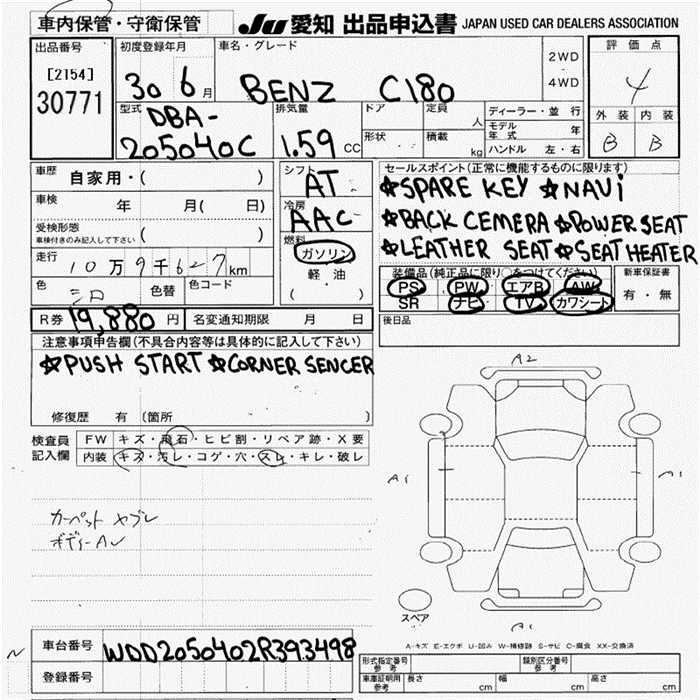 車内保管・守衛保管
JU 愛知 出品申込書 JAPAN USED CAR DEALERS ASSOCIATION
出品番号
[2154]
30771
初度登録年月
30 6月
車名・グレード
BENZ C180
2WD
・
4WD
評価点
4
外装 内装
B B
型式
DBA-
205040C
排気量
1.59 CC
ドア
・
形状
・・
定員
人
積載
kg
ディーラー・並 行
モデル年式 年
ハンドル 左・右
車歴
自家用・( )
車検
年 月( 日)
受検形態
車検付きのみ記入して下さい ( )
走行
10万9千627km
色
シロ
色替
色コード
シフト
AT
冷房
AAC
燃料
ガソリン
軽 油
( )
セールスポイント(正常に機能するものに限ります)
☆SPARE KEY ☆NAVi
☆BACK CEMERA ☆POWER SEAT
☆LEATHER SEAT ☆SEAT HEATER
装備品(純正品に限り○をつけてください)
PS PW エアB AW
SR ナビ TV カワシート
新車保証書
有・無
R券 19,880 円 名変通知期限 月 日
後日品
注意事項申告欄(不具合内容等は具体的に記入して下さい)
☆PUSH START ☆CORNER SENCER
修復歴 有 (箇所 )
検査員
記入欄
FW キズ・飛石・ヒビ割・リペア跡・X要
内装 キズ・汚レ・コゲ・穴・スレ・キレ・破レ
カーペット ヤブレ
ボディーAU
A2
A1
A1
スペア
A1
A-キズ E-エクボ U-凹み W-補修跡 S-サビ C-腐食 XX-交換済
車台番号 WDD2050402R393498
登録番号
形式指定番号
参考
類別区分番号
参考
車庫証明用
参考
長さ cm 幅 cm 高さ cm